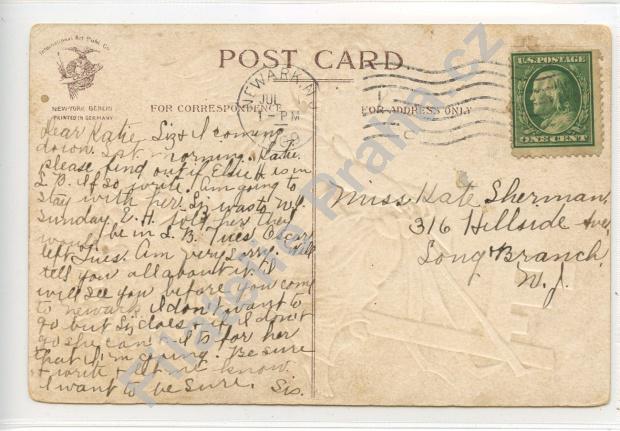 International Art Publ. Co.
NEW-YORK BERLIN
PRINTED IN GERMANY
POST CARD
FOR CORRESPONDENCE
FOR ADDRESS ONLY
NEWARK, N.J.
JUL
1-PM
U.S. POSTAGE
ONE CENT
Dear Katie Liz & I coming
down. Sat. morning. Katie
please find out if Elsie is in
L. B. If so write. Am going to
stay with her. Liz wants
Sunday. E. H. told her they
be in L. B. Tues Oscar
left Tues. Am very sorry. Will
tell you all about it. I
will see you before you come
to newark I don't want to
go but Liz does & if I don't
go she can't. It's for her
that I'm coming. Be sure
& write & let me know
I want to be sure. Sis.
Miss Kate Sherman
316 Hillside Ave.
Long Branch
N. J.
Filatelie Praha.cz